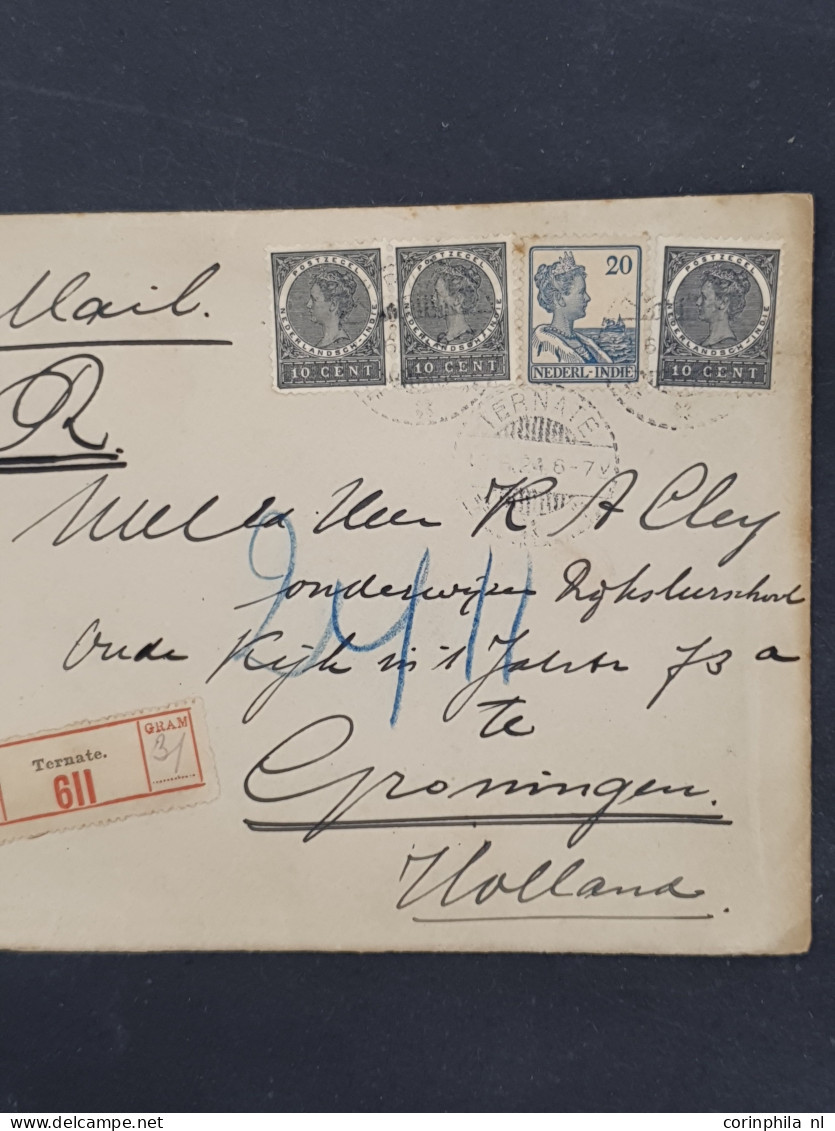 Mail.
R.
POSTZEGEL
NEDERLANDSCH-INDIE
10 CENT
POSTZEGEL
NEDERLANDSCH-INDIE
10 CENT
20
NEDERL-INDIE
POSTZEGEL
NEDERLANDSCH-INDIE
10 CENT
TERNATE
.24.6-7V
Heer K A Cley
onderwijzer Rijksleerschool
Oude Kijk in 't Jatstr 73 a
te
Groningen.
Holland.
2411
Ternate.
611
GRAM
31
www.corinphila nl